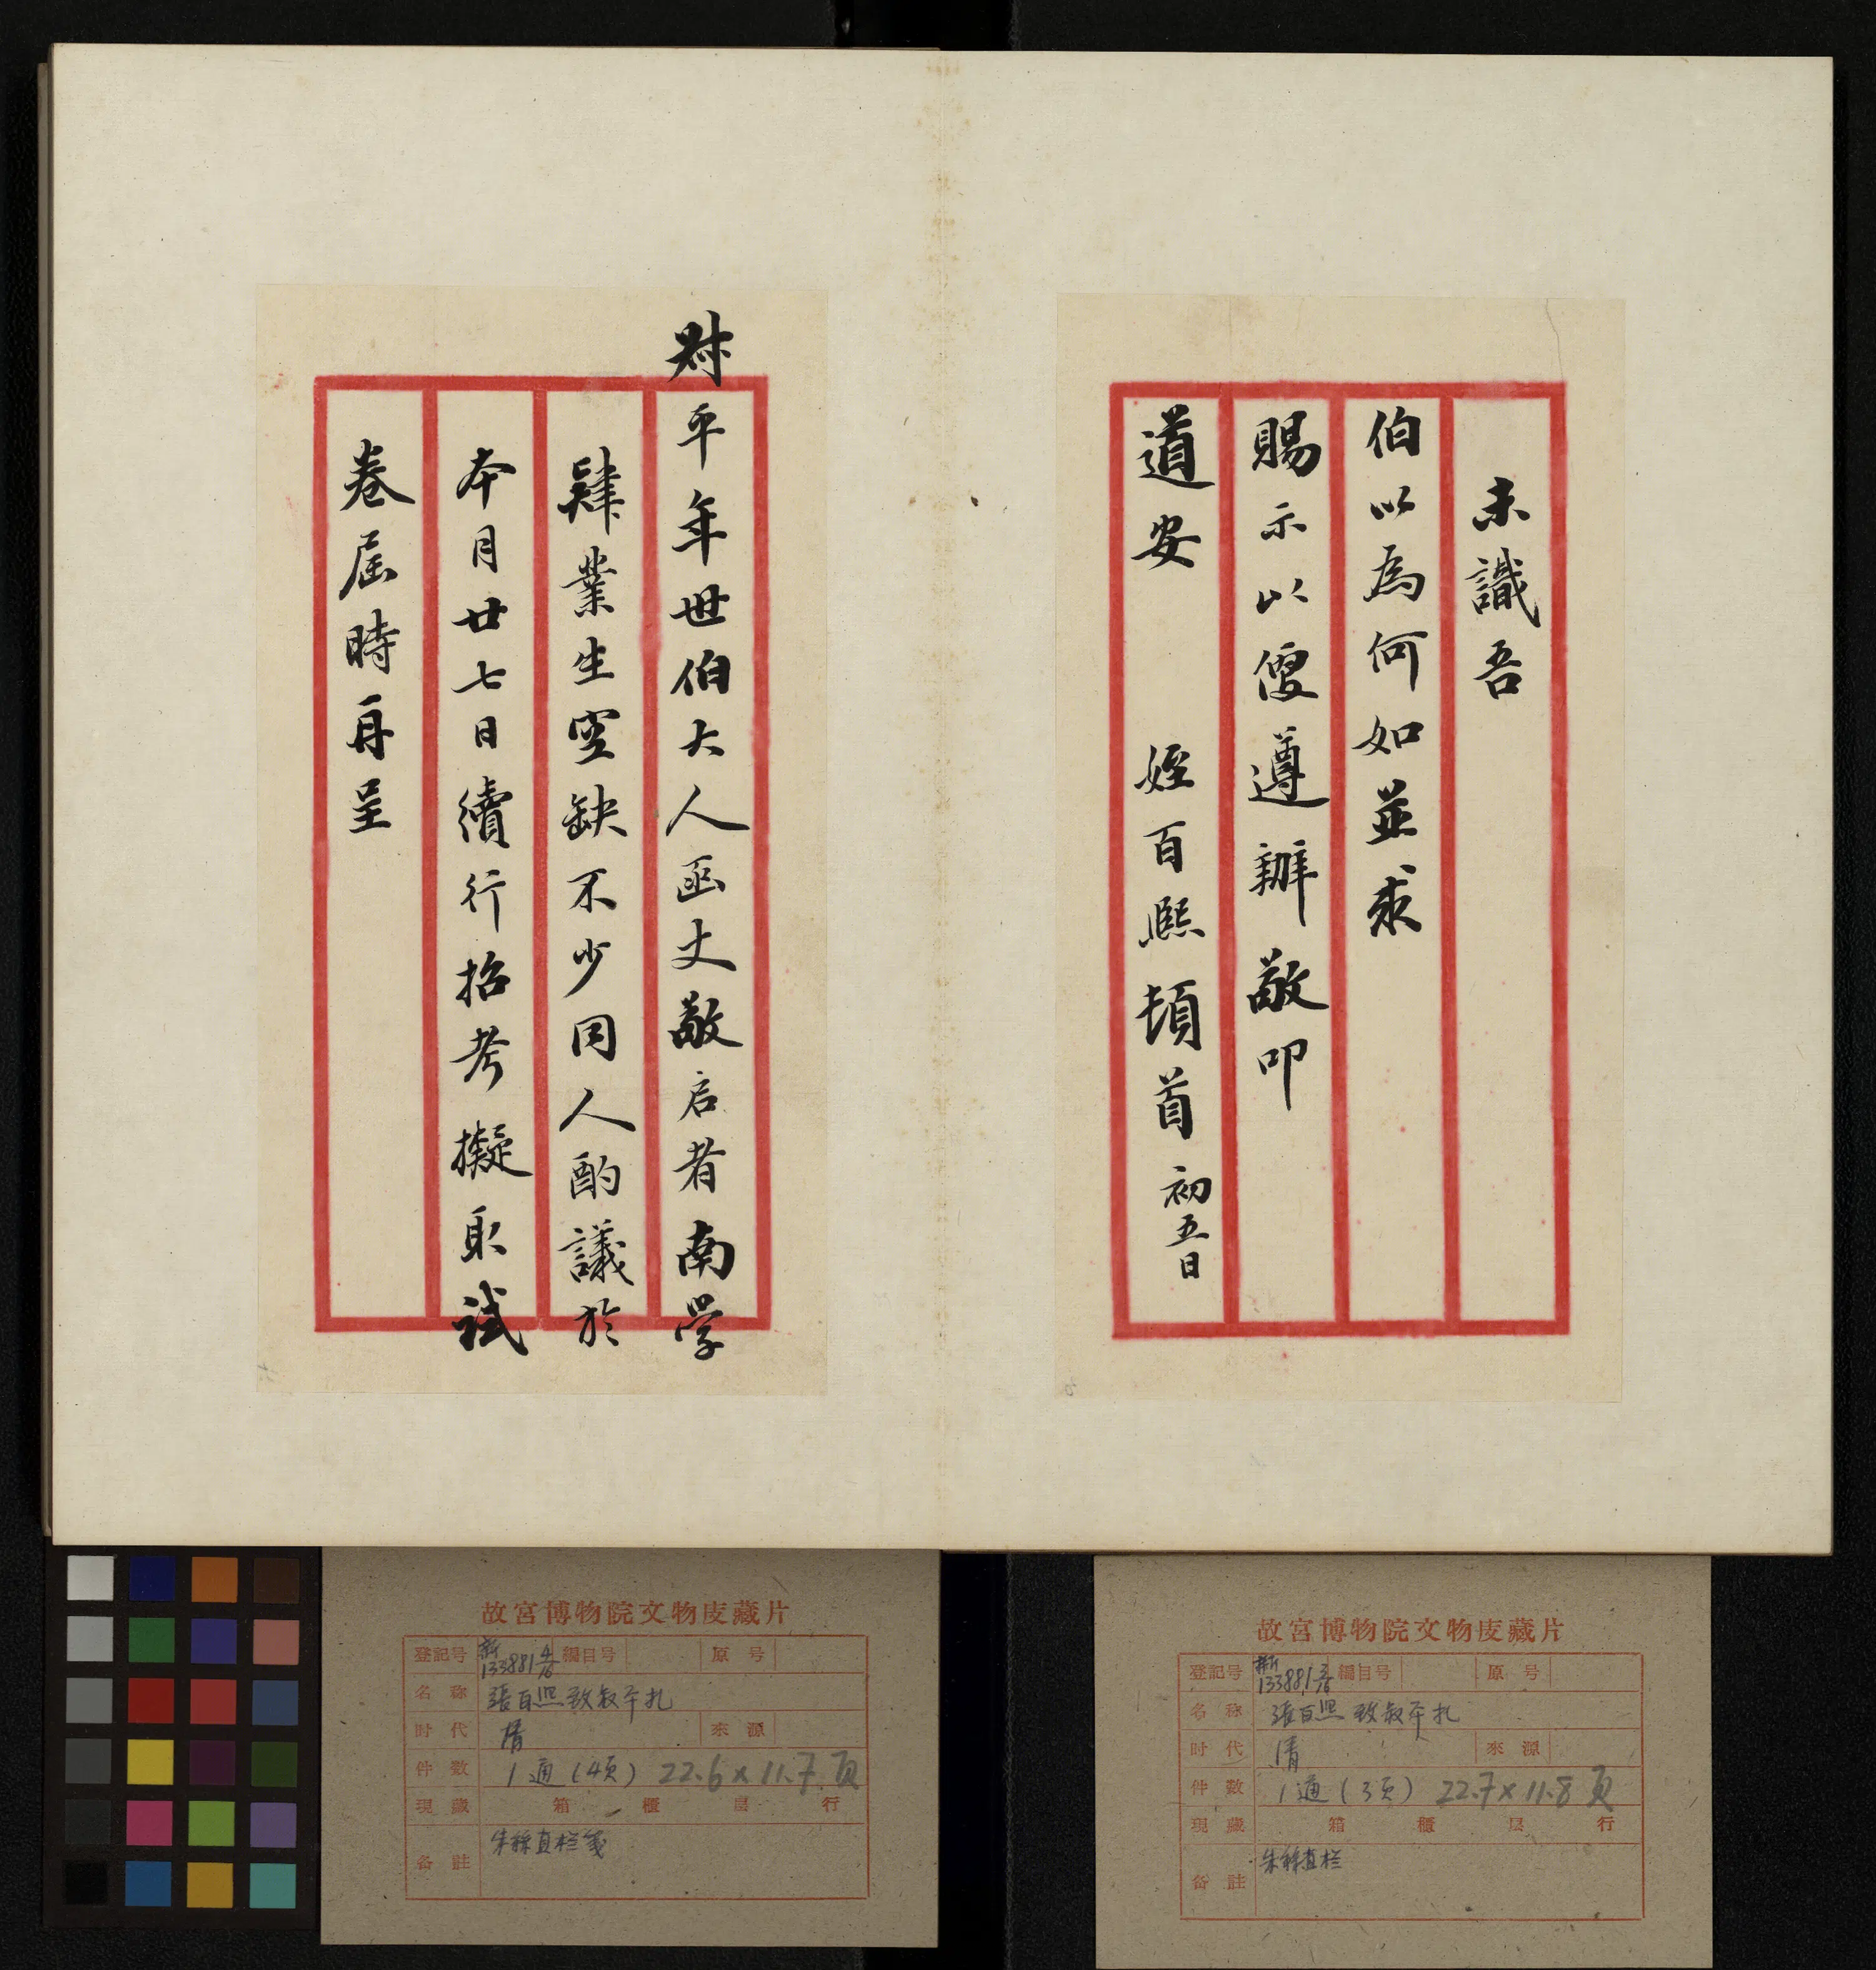 未識吾
伯以為何如並求
賜示以便遵辦敬叩
道安 姪百熙頓首 初五日
叔平年世伯大人函丈敬启者南学
肄業生空缺不少同人酌議於
本月廿七日續行招考擬取試
卷屆時再呈
故宮博物院文物庋藏片
登記号 新133881 4/16 編目号 原号
名称 張百熙致叔平扎
时代 清 來源
件数 1通(4页) 22.6×11.7 页
現藏 箱 櫃 层 行
备註 朱絲直栏笺
故宮博物院文物庋藏片
登記号 新133881 3/16 編目号 原号
名称 張百熙致叔平扎
时代 清 來源
件数 1通(3页) 22.7×11.8 页
現藏 箱 櫃 层 行
备註 朱絲直栏